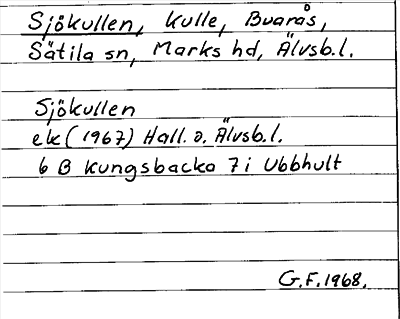 Sjökullen, kulle, Buarås,
Sätila sn, Marks hd, Älvsb.l.
Sjökullen
ek (1967) Hall. o. Älvsb.l.
6 B Kungsbacka 7i Ubbhult
G.F.1968.